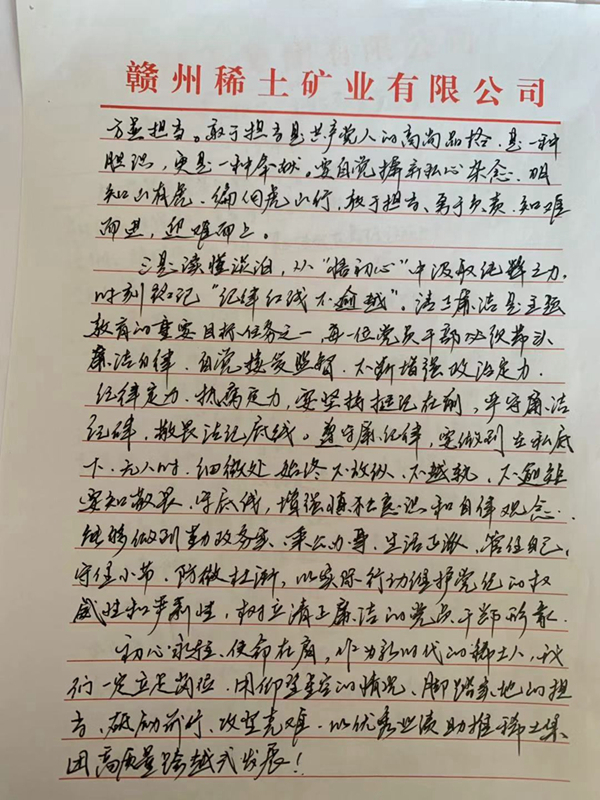 赣州稀土矿业有限公司
方显担当。敢于担当是共产党人的高尚品格,是一种
胆识,更是一种奉献。要自觉摒弃私心杂念,明
知山有虎、偏向虎山行,敢于担当、勇于负责、知难
而进,迎难而上。
三是读懂淡泊,从“悟初心”中汲取纯粹之力,
时刻铭记“纪律红线不逾越”。清正廉洁是主题
教育的重要目标任务之一,每一位党员干部必须带头
廉洁自律、自觉接受监督,不断增强政治定力、
纪律定力、抵腐定力,要坚持挺纪在前,严守廉洁
纪律,敬畏法纪底线。遵守廉纪律,要做到在私底
下、无人时、细微处始终不放纵、不越轨、不逾矩
要知敬畏、守底线,增强慎独意识和自律观念,
能够做到勤政务实、秉公办事、生活正派,管住自己,
守住小节、防微杜渐,以实际行动维护党纪的权
威性和严肃性,树立清正廉洁的党员干部形象。
初心永驻、使命在肩,作为新时代的稀土人,我
们一定立足岗位,用仰望星空的情怀、脚踏实地的担
当、砥砺前行、攻坚克难,以优秀业绩助推稀土集
团高质量跨越式发展!